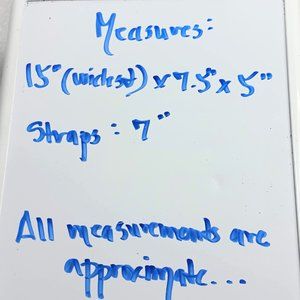 Measures:
15" (widest) x 7.5" x 5"
Straps: 7"
All measurements are
approximate...